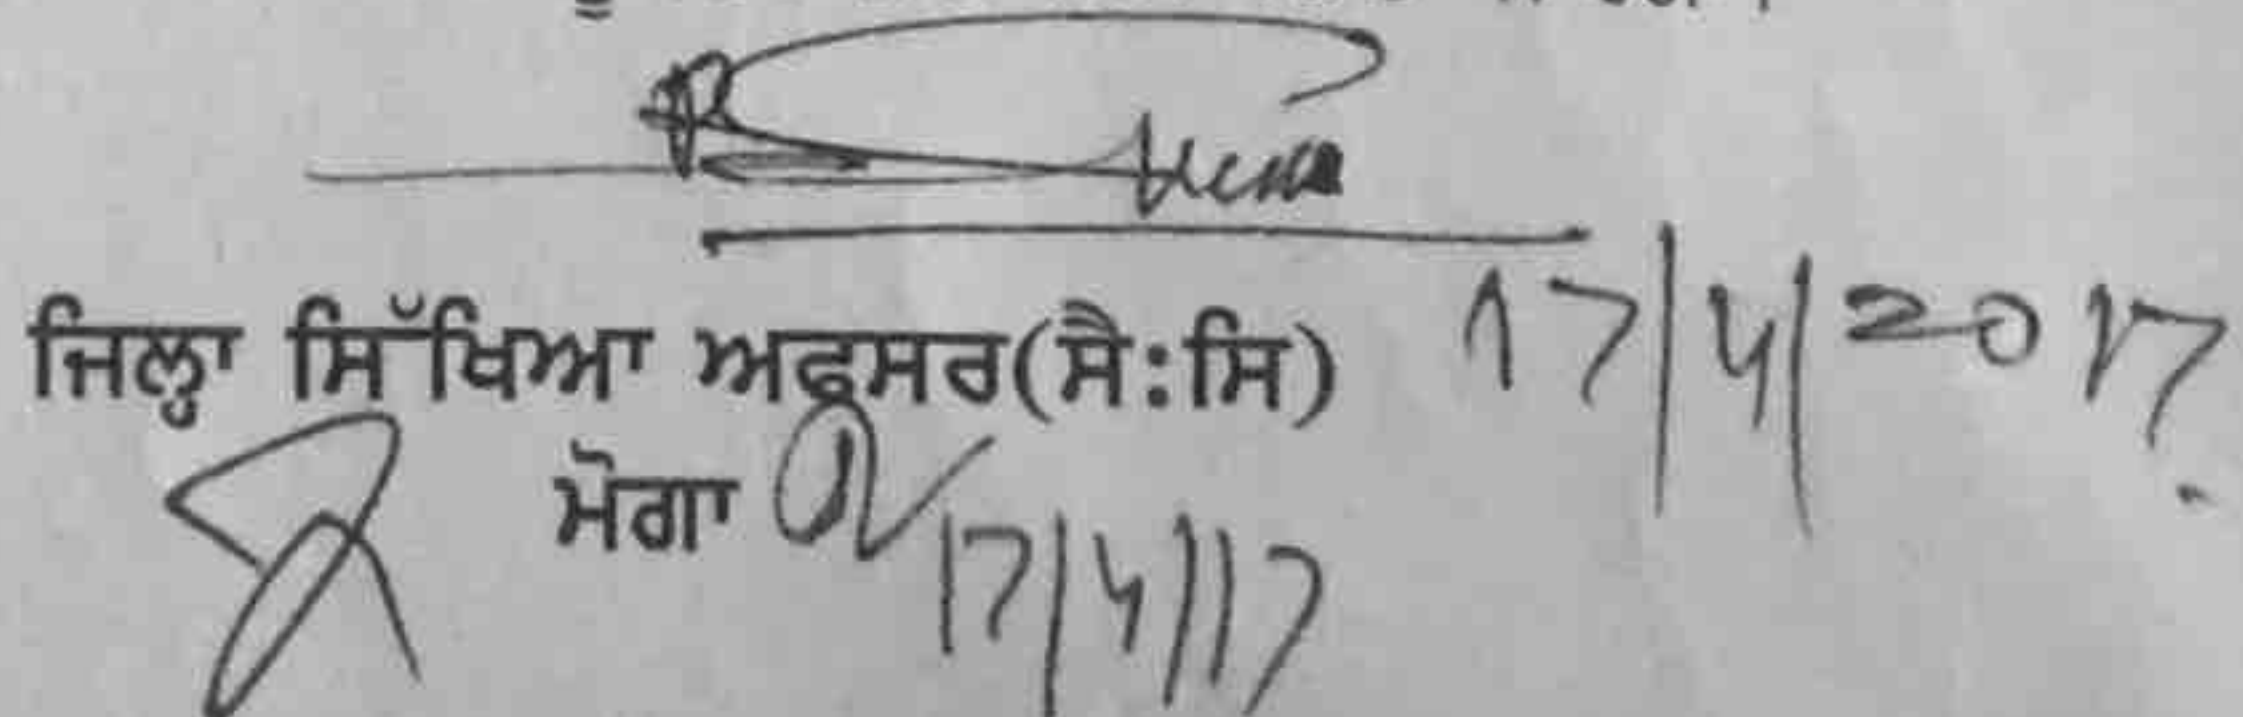 ਜਿਲ੍ਹਾ ਸਿੱਖਿਆ ਅਫਸਰ(ਸੈ:ਸਿ) 17/4/2017
ਮੋਗਾ
17/4/17